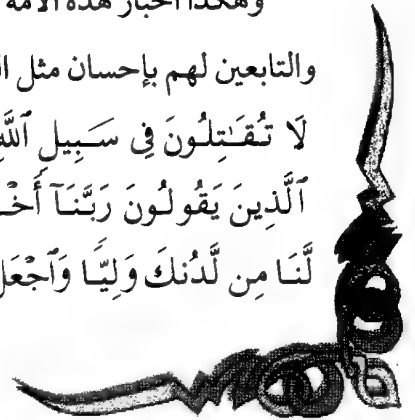 وهكذا أخبار هذه الأمة
والتابعين لهم بإحسان مثل
لَا تُقَـٰتِلُونَ فِى سَبِيلِ ٱللَّهِ
ٱلَّذِينَ يَقُولُونَ رَبَّنَآ
لَّنَا مِن لَّدُنكَ وَلِيًّا وَٱجْعَل